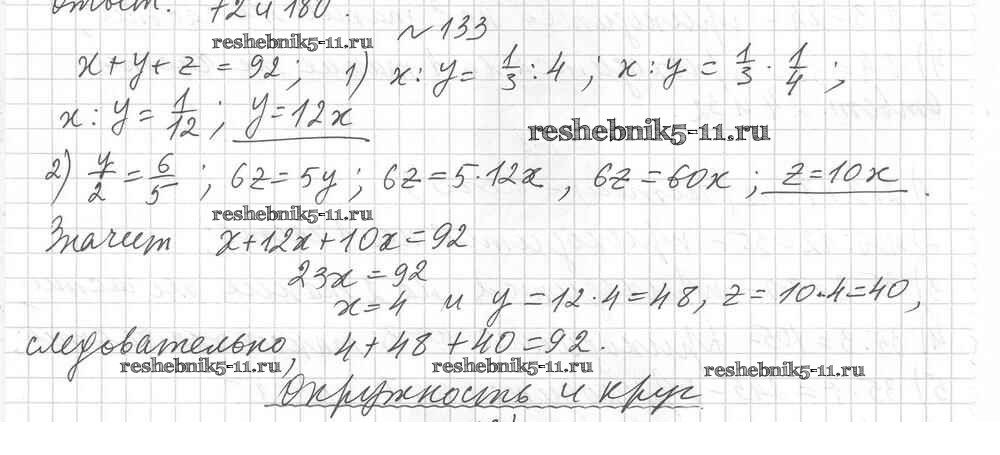 Ответ. 72 и 180.
reshebnik5-11.ru
№ 133
x+y+z = 92; 1) x:y = 1/3 : 4; x:y = 1/3 · 1/4;
x:y = 1/12; y=12x
reshebnik5-11.ru
2) y/2 = 6/5; 6z = 5y; 6z = 5·12x, 6z = 60x; z=10x.
reshebnik5-11.ru
Значит x+12x+10x=92
23x = 92
x=4 и y = 12·4=48, z = 10·4=40,
следовательно, 4+48+40=92.
reshebnik5-11.ru reshebnik5-11.ru reshebnik5-11.ru
Окружность и круг